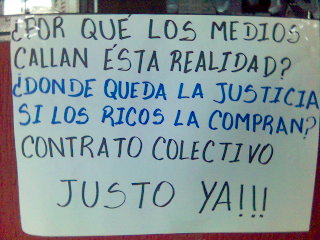 ¿POR QUÉ LOS MEDIOS
CALLAN ÉSTA REALIDAD?
¿DONDE QUEDA LA JUSTICIA
SI LOS RICOS LA COMPRAN?
CONTRATO COLECTIVO
JUSTO YA!!!